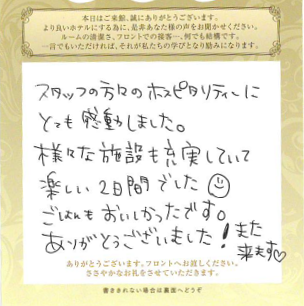 本日はご来館、誠にありがとうございます。
より良いホテルにする為に、是非あなた様の声をお聞かせください。
ルームの清潔さ、フロントでの接客…何でも結構です。
一言でもいただければ、それが私たちの学びとなり励みになります。
スタッフの方々のホスピタリティーに
とても感動しました。
様々な施設も充実していて
楽しい2日間でした☺
ごはんもおいしかったです。
ありがとうございました！また
来ます♡
ありがとうございます。フロントへお渡しください。
ささやかなお礼をさせていただきます。
書ききれない場合は裏面へどうぞ